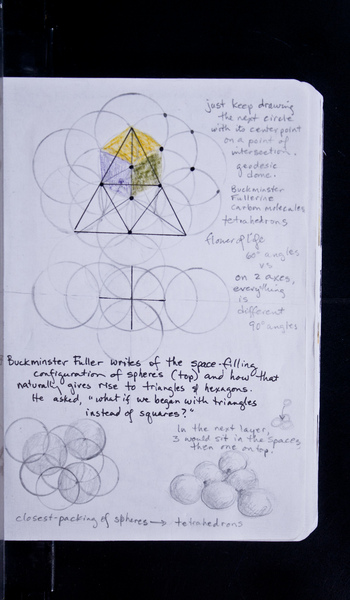 just keep drawing
the next circle
with its centerpoint
on a point of
intersection.
geodesic
dome.
Buckminster
Fullerine
carbon molecules
tetrahedrons
flower of life
60° angles
vs
on 2 axes,
everything
is
different
90° angles
Buckminster Fuller writes of the space-filling
configuration of spheres (top) and how that
naturally gives rise to triangles & hexagons.
He asked, "what if we began with triangles
instead of squares?"
In the next layer,
3 would sit in the spaces,
then one on top.
closest-packing of spheres → tetrahedrons